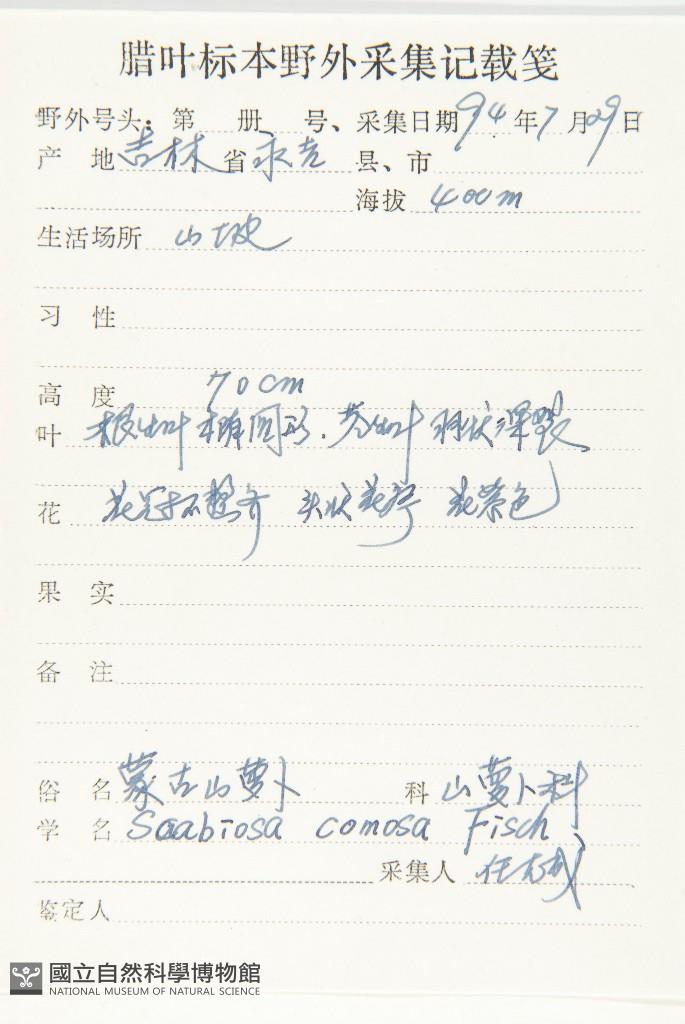 腊叶标本野外采集记载笺
野外号头：第 册 号、采集日期 94 年 7 月 29 日
产 地 吉林 省 永吉 县、市
海拔 400m
生活场所 山坡
习 性
高 度 70cm
叶 根生叶椭圆形．茎生叶羽状深裂
花 花冠不整齐 头状花序 花紫色
果 实
备 注
俗 名 蒙古山萝卜 科 山萝卜科
学 名 Scabiosa comosa Fisch
采集人 任
鉴定人
國立自然科學博物館
NATIONAL MUSEUM OF NATURAL SCIENCE